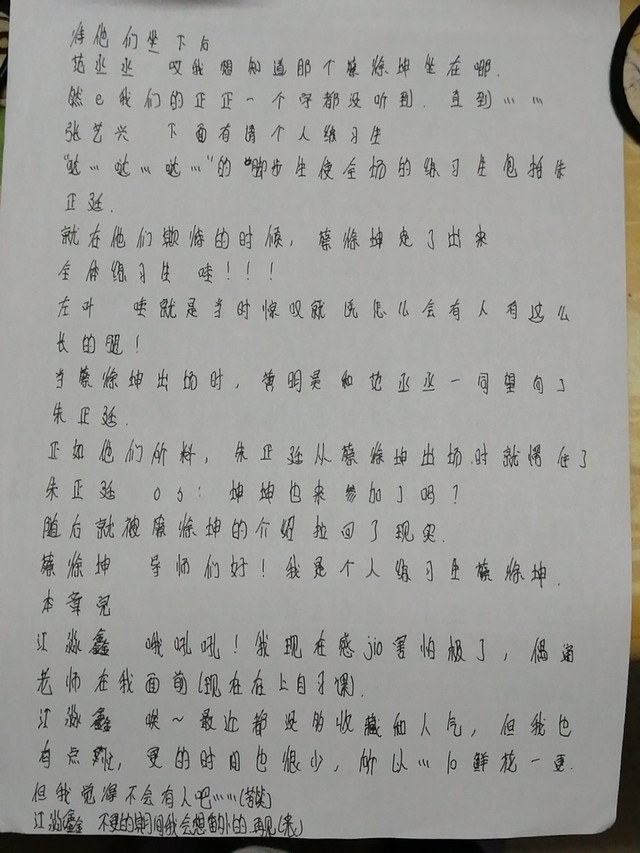 等他们坐下后
范丞丞 哎我想知道那个蔡徐坤坐在哪.
然e我们的正正一个字都没听到. 直到……
张艺兴 下面有请个人练习生
"哒… 哒… 哒…"的"脚步生使全场的练习生包括朱
正廷.
就在他们期待的时候, 蔡徐坤走了出来
全体练习生 哇!!!
左叶 哇就是当时惊叹就说怎么会有人有这么
长的腿!
当蔡徐坤出场时, 黄明昊和范丞丞一同望向了
朱正廷.
正如他们所料, 朱正廷从蔡徐坤出场时就愣住了
朱正廷 os: 坤坤也来参加了吗?
随后就被蔡徐坤的介绍拉回了现实.
蔡徐坤 导师们好! 我是个人练习生蔡徐坤.
本章完
江淼鑫 哦吼吼! 我现在感jio害怕极了,
老师在我面前(现在在上自习课).
江淼鑫 唉~最近都没的收藏和人气, 但我也
有点, 更的时间也很少, 所以… 10鲜花一更.
但我觉得不会有人吧……(苦笑)
江淼鑫 不更的期间我会想番外的. 再见